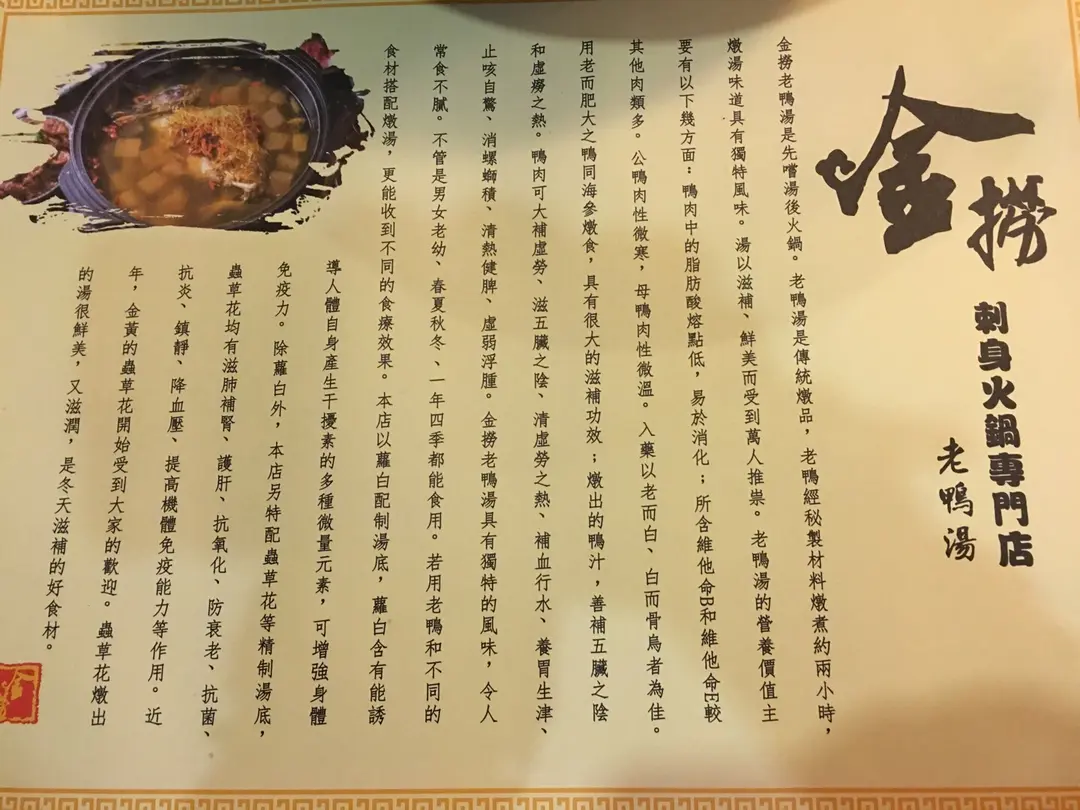 金撈
刺身火鍋專門店
老鴨湯
金撈老鴨湯是先嚐湯後火鍋。老鴨湯是傳統燉品，老鴨經秘製材料燉煮約兩小時，
燉湯味道具有獨特風味。湯以滋補、鮮美而受到萬人推崇。老鴨湯的營養價值主
要有以下幾方面：鴨肉中的脂肪酸熔點低，易於消化；所含維他命B和維他命E較
其他肉類多。公鴨肉性微寒，母鴨肉性微溫。入藥以老而白、白而骨烏者為佳。
用老而肥大之鴨同海參燉食，具有很大的滋補功效；燉出的鴨汁，善補五臟之陰
和虛癆之熱。鴨肉可大補虛勞、滋五臟之陰、清虛勞之熱、補血行水、養胃生津、
止咳自驚、消螺螄積、清熱健脾、虛弱浮腫。金撈老鴨湯具有獨特的風味，令人
常食不膩。不管是男女老幼、春夏秋冬、一年四季都能食用。若用老鴨和不同的
食材搭配燉湯，更能收到不同的食療效果。本店以蘿白配制湯底，蘿白含有能誘
導人體自身產生干擾素的多種微量元素，可增強身體
免疫力。除蘿白外，本店另特配蟲草花等精制湯底，
蟲草花均有滋肺補腎、護肝、抗氧化、防衰老、抗菌、
抗炎、鎮靜、降血壓、提高機體免疫能力等作用。近
年，金黃的蟲草花開始受到大家的歡迎。蟲草花燉出
的湯很鮮美，又滋潤，是冬天滋補的好食材。